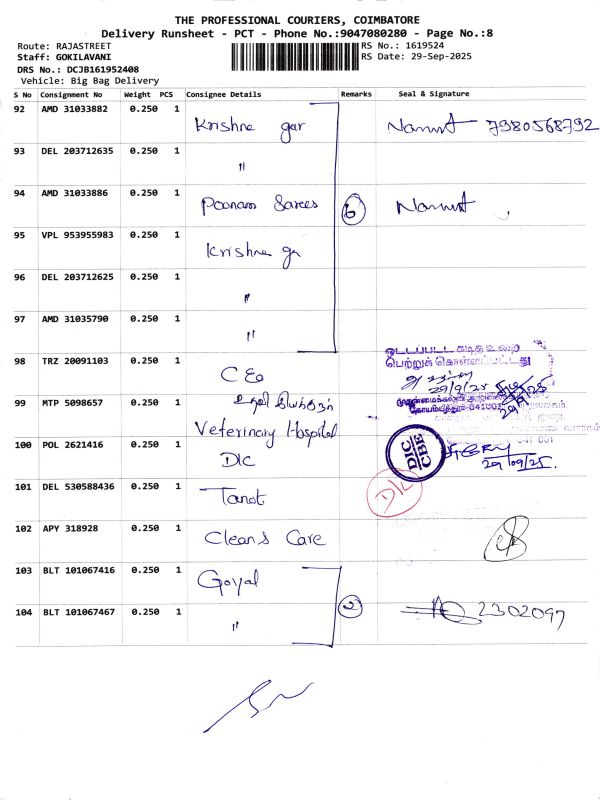 THE PROFESSIONAL COURIERS, COIMBATORE
Delivery Runsheet - PCT - Phone No.:9047080280 - Page No.:8
Route: RAJASTREET
RS No.: 1619524
Staff: GOKILAVANI
RS Date: 29-Sep-2025
DRS No.: DCJB161952408
Vehicle: Big Bag Delivery
S No Consignment No Weight PCS Consignee Details Remarks Seal & Signature
92 AMD 31033882 0.250 1 Krishna 7980568792
93 DEL 203712635 0.250 1 "
94 AMD 31033886 0.250 1 Poonam Sarees 6
95 VPL 953955983 0.250 1 Krishna
96 DEL 203712625 0.250 1 "
97 AMD 31035790 0.250 1 "
ஒட்டப்பட்ட கடித உறை
பெற்றுக் கொள்ளப்பட்டது
98 TRZ 20091103 0.250 1 CEO
29/9/25
99 MTP 5098657 0.250 1
Veterinary Hospital
100 POL 2621416 0.250 1 DIC
DIC
CBE
29/09/25.
101 DEL 530588436 1 0.250 Tanot DIC
102 APY 318928 0.250 1 Cleans Care
103 BLT 101067416 0.250 1 Goyal
104 BLT 101067467 0.250 1 " 2 2302097